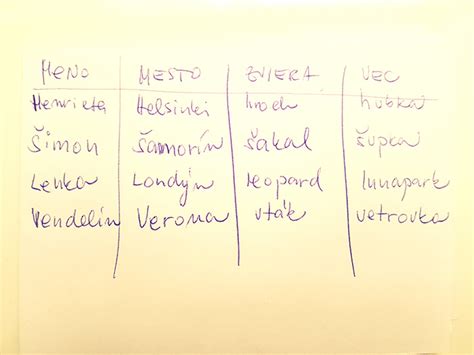 MENO MESTO ZVIERA VEC
Henrieta Helsinki hroch hubka
Šimon Šamorín šakal šupka
Lenka Londýn leopard lunapark
Vendelín Verona vták vetrovka